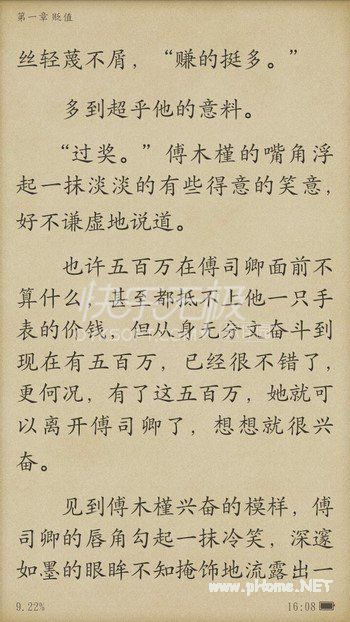 第一章 贬值
丝轻蔑不屑，“赚的挺多。”
多到超乎他的意料。
“过奖。”傅木槿的嘴角浮
起一抹淡淡的有些得意的笑意，
好不谦虚地说道。
也许五百万在傅司卿面前不
算什么，甚至都抵不上他一只手
表的价钱，但从身无分文奋斗到
现在有五百万，已经很不错了，
更何况，有了这五百万，她就可
以离开傅司卿了，想想就很兴
奋。
见到傅木槿兴奋的模样，傅
司卿的唇角勾起一抹冷笑，深邃
如墨的眼眸不知掩饰地流露出一
www.pHome.NET
9.22%
16:08